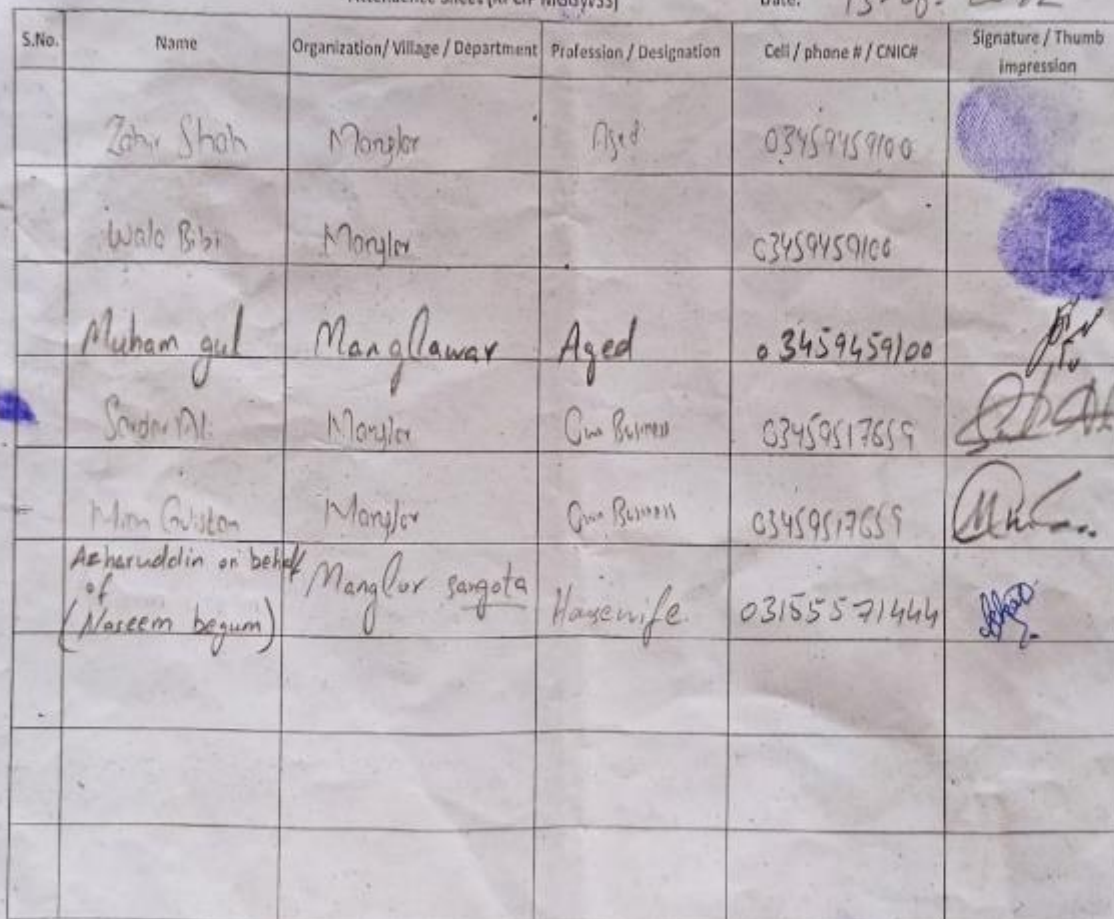 Date:
S.No. Name Organization/ Village / Department Profession / Designation Cell / phone # / CNIC# Signature / Thumb impression
Zahir Shah Manglor Aged 03459459100
Wala Bibi Manglor 03459459100
Muham gul Manglawar Aged 03459459100
Sardar Ali Manglor Own Business 03459517659
Mian Gulistan Manglor Own Business 03459517659
Azharuddin on behalf of (Naseem begum) Manglor sangota Hausewife 03155571444